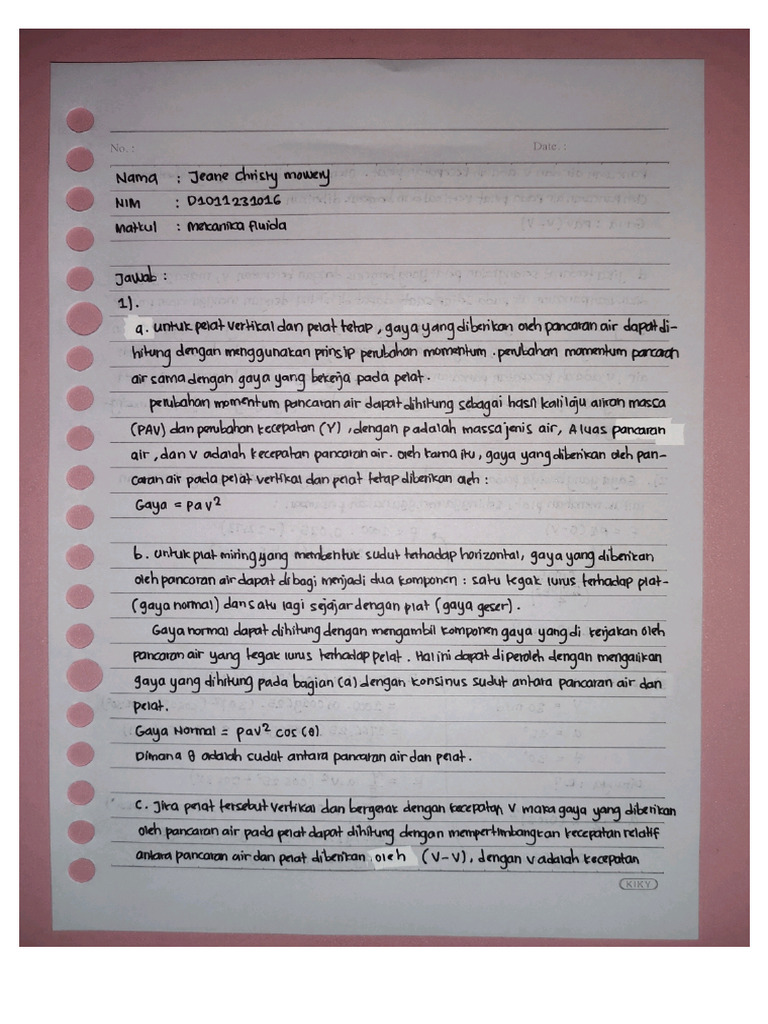 No. :
Date. :
Nama : Jeane Christy mowery
NIM : D1011231016
Matkul : mekanika fluida
Jawab :
1).
a. untuk pelat vertikal dan pelat tetap, gaya yang diberikan oleh pancaran air dapat di-
hitung dengan menggunakan prinsip perubahan momentum. perubahan momentum pancaran
air sama dengan gaya yang bekerja pada pelat.
perubahan momentum pancaran air dapat dihitung sebagai hasil kali laju aliran massa
(PAV) dan perubahan kecepatan (V), dengan p adalah massa jenis air, A luas pancaran
air, dan v adalah kecepatan pancaran air. oleh karna itu, gaya yang diberikan oleh pan-
caran air pada pelat vertikal dan pelat tetap diberikan oleh :
Gaya = pav²
b. untuk plat miring yang membentuk sudut terhadap horizontal, gaya yang diberikan
oleh pancaran air dapat dibagi menjadi dua komponen : satu tegak lurus terhadap plat-
(gaya normal) dan satu lagi sejajar dengan plat (gaya geser).
Gaya normal dapat dihitung dengan mengambil komponen gaya yang di kerjakan oleh
pancaran air yang tegak lurus terhadap pelat. Hal ini dapat diperoleh dengan mengalikan
gaya yang dihitung pada bagian (a) dengan konsinus sudut antara pancaran air dan
pelat.
Gaya Normal = pav² cos (θ)
Dimana θ adalah sudut antara pancaran air dan pelat.
C. Jika pelat tersebut vertikal dan bergerak dengan kecepatan v maka gaya yang diberikan
oleh pancaran air pada pelat dapat dihitung dengan mempertimbangkan kecepatan relatif
antara pancaran air dan pelat diberikan oleh (V-V), dengan v adalah kecepatan
KIKY